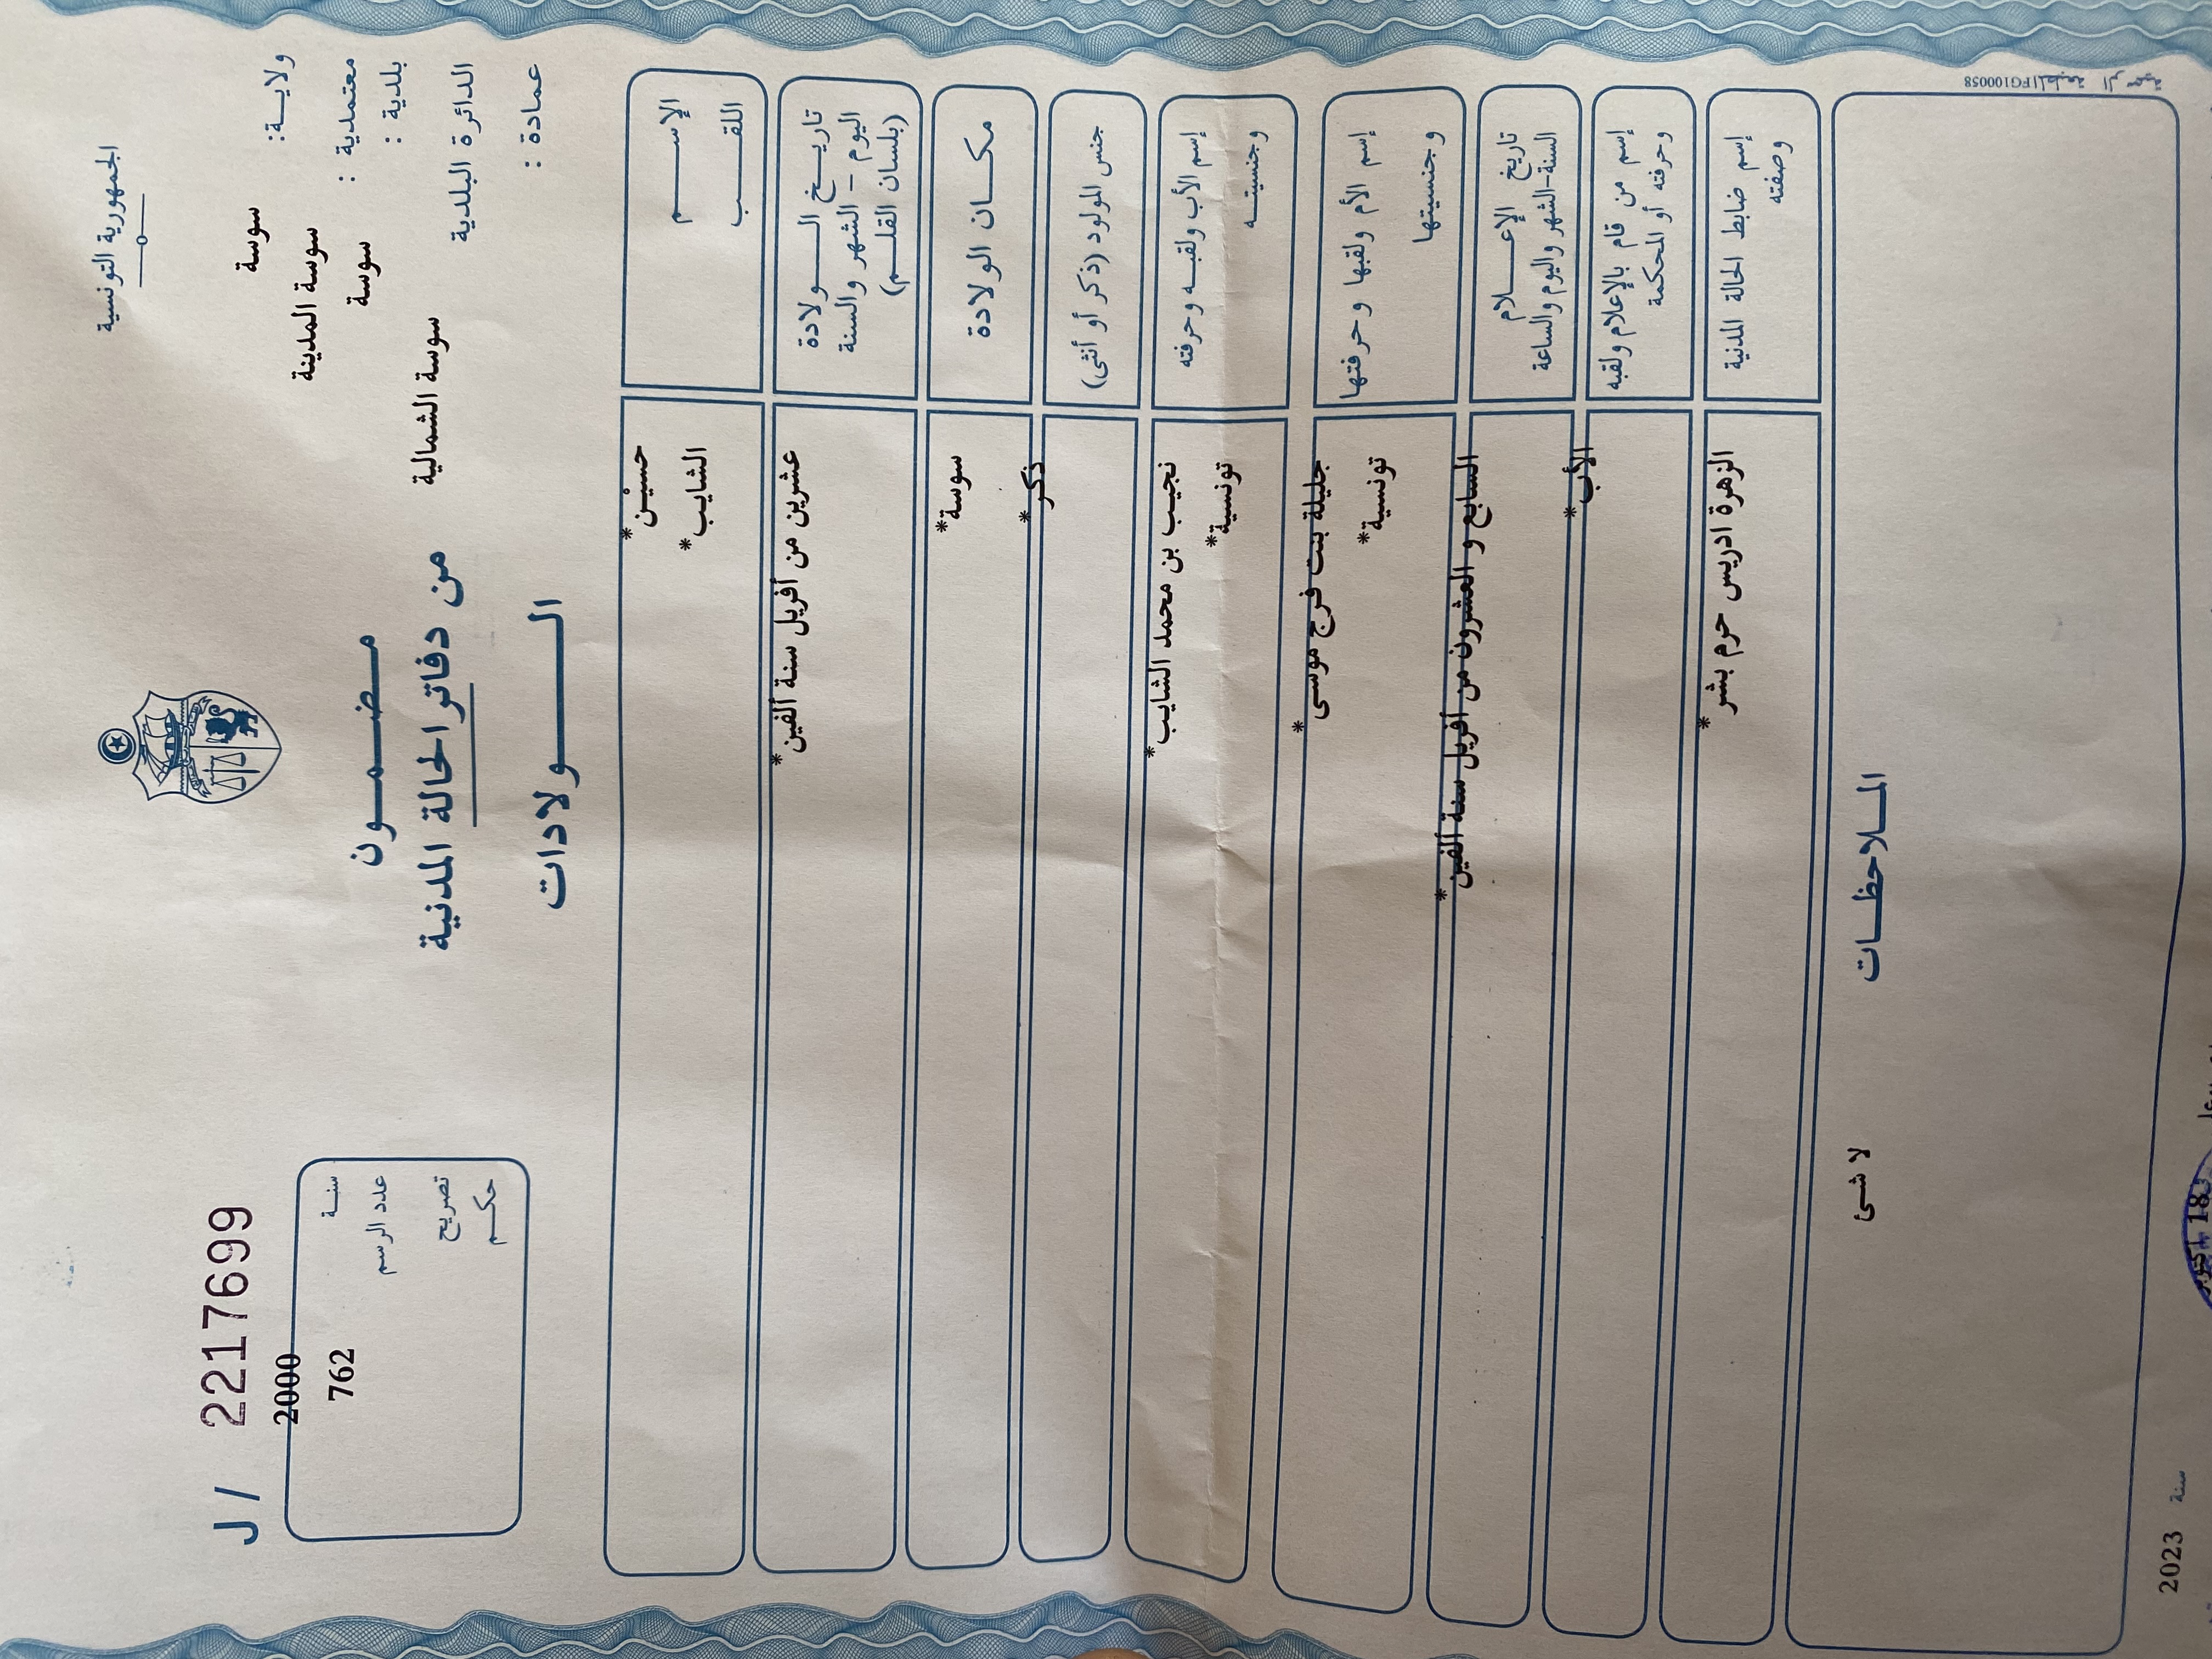 الجمهورية التونسية
ولاية: سوسة
معتمدية : سوسة المدينة
بلدية : سوسة
الدائرة البلدية سوسة الشمالية
عمادة :
مضمون
من دفاتر الحالة المدنية
الولادات
J / 2217699
سنة 2000
عدد الرسم 762
تصريح
حكم
الإسم حسين*
اللقب الشايب*
تاريخ الولادة عشرين من أفريل سنة ألفين*
اليوم - الشهر والسنة
(بلسان القلم)
مكان الولادة سوسة*
جنس المولود (ذكر أو أنثى) ذكر*
إسم الأب ولقبه وحرفته نجيب بن محمد الشايب*
وجنسيته تونسية*
إسم الأم ولقبها وحرفتها جليلة بنت فرج موسى*
وجنسيتها تونسية*
تاريخ الإعلام السابع و العشرون من أفريل سنة ألفين*
السنة-الشهر واليوم والساعة
إسم من قام بالإعلام ولقبه الأب*
وحرفته أو المحكمة
إسم ضابط الحالة المدنية الزهرة ادريس حرم بشر*
وصفته
الملاحظات
لا شئ
المطبعة الرسمية FG100058
18 أكتوبر
سنة 2023